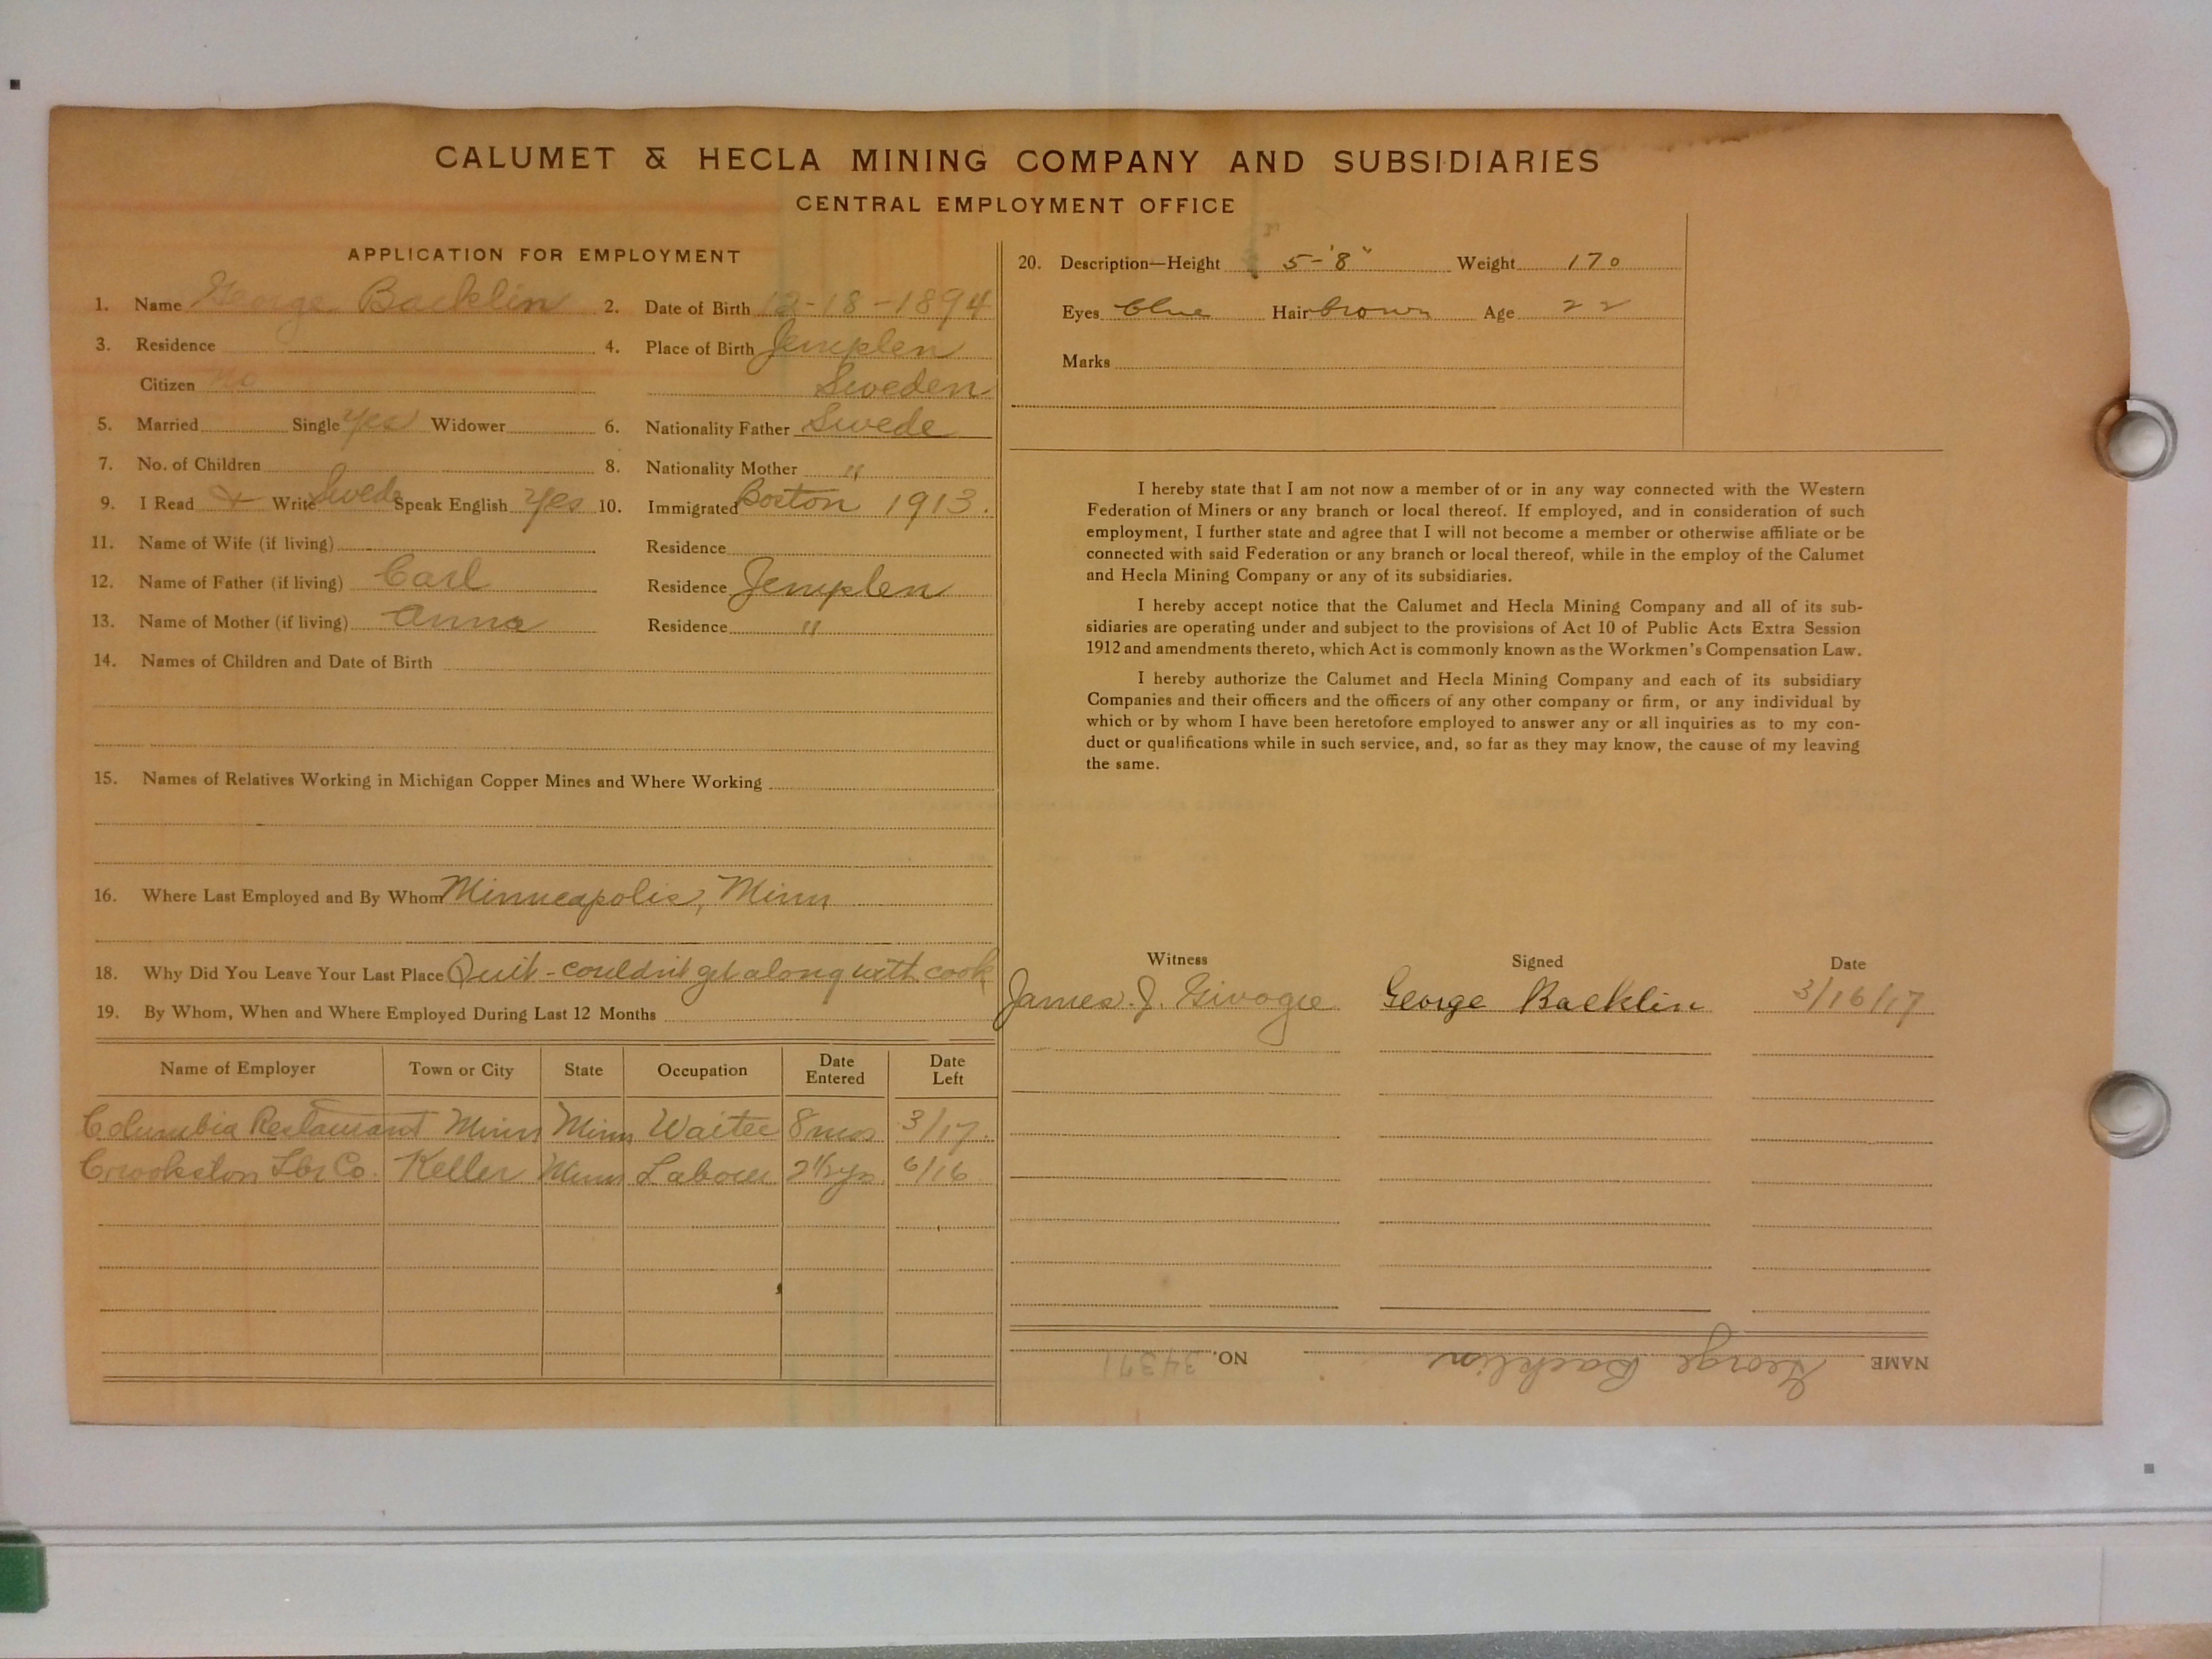 CALUMET & HECLA MINING COMPANY AND SUBSIDIARIES
CENTRAL EMPLOYMENT OFFICE
APPLICATION FOR EMPLOYMENT
1. Name George Backlin 2. Date of Birth 12-18-1894
3. Residence 4. Place of Birth Jemplen
Citizen No Sweden
5. Married Single yes Widower 6. Nationality Father Swede
7. No. of Children 8. Nationality Mother "
9. I Read & Write Swede Speak English Yes 10. Immigrated Boston 1913.
11. Name of Wife (if living) Residence
12. Name of Father (if living) Carl Residence Jemplen
13. Name of Mother (if living) Anna Residence "
14. Names of Children and Date of Birth
15. Names of Relatives Working in Michigan Copper Mines and Where Working
16. Where Last Employed and By Whom Minneapolis, Minn
18. Why Did You Leave Your Last Place Quit - couldn't get along with cook
19. By Whom, When and Where Employed During Last 12 Months
Name of Employer Town or City State Occupation Date Entered Date Left
Columbia Restaurant Minn Minn Waiter 8 mos 3/17.
Crookston Lbr Co. Keller Minn Laborer 2 1/2 yrs 6/16
20. Description—Height 5-'8" Weight 170
Eyes blue Hair brown Age 22
Marks
I hereby state that I am not now a member of or in any way connected with the Western
Federation of Miners or any branch or local thereof. If employed, and in consideration of such
employment, I further state and agree that I will not become a member or otherwise affiliate or be
connected with said Federation or any branch or local thereof, while in the employ of the Calumet
and Hecla Mining Company or any of its subsidiaries.
I hereby accept notice that the Calumet and Hecla Mining Company and all of its sub-
sidiaries are operating under and subject to the provisions of Act 10 of Public Acts Extra Session
1912 and amendments thereto, which Act is commonly known as the Workmen's Compensation Law.
I hereby authorize the Calumet and Hecla Mining Company and each of its subsidiary
Companies and their officers and the officers of any other company or firm, or any individual by
which or by whom I have been heretofore employed to answer any or all inquiries as to my con-
duct or qualifications while in such service, and, so far as they may know, the cause of my leaving
the same.
Witness Signed Date
James J. George Backlin 3/16/17
NAME George Backlin NO. 34371